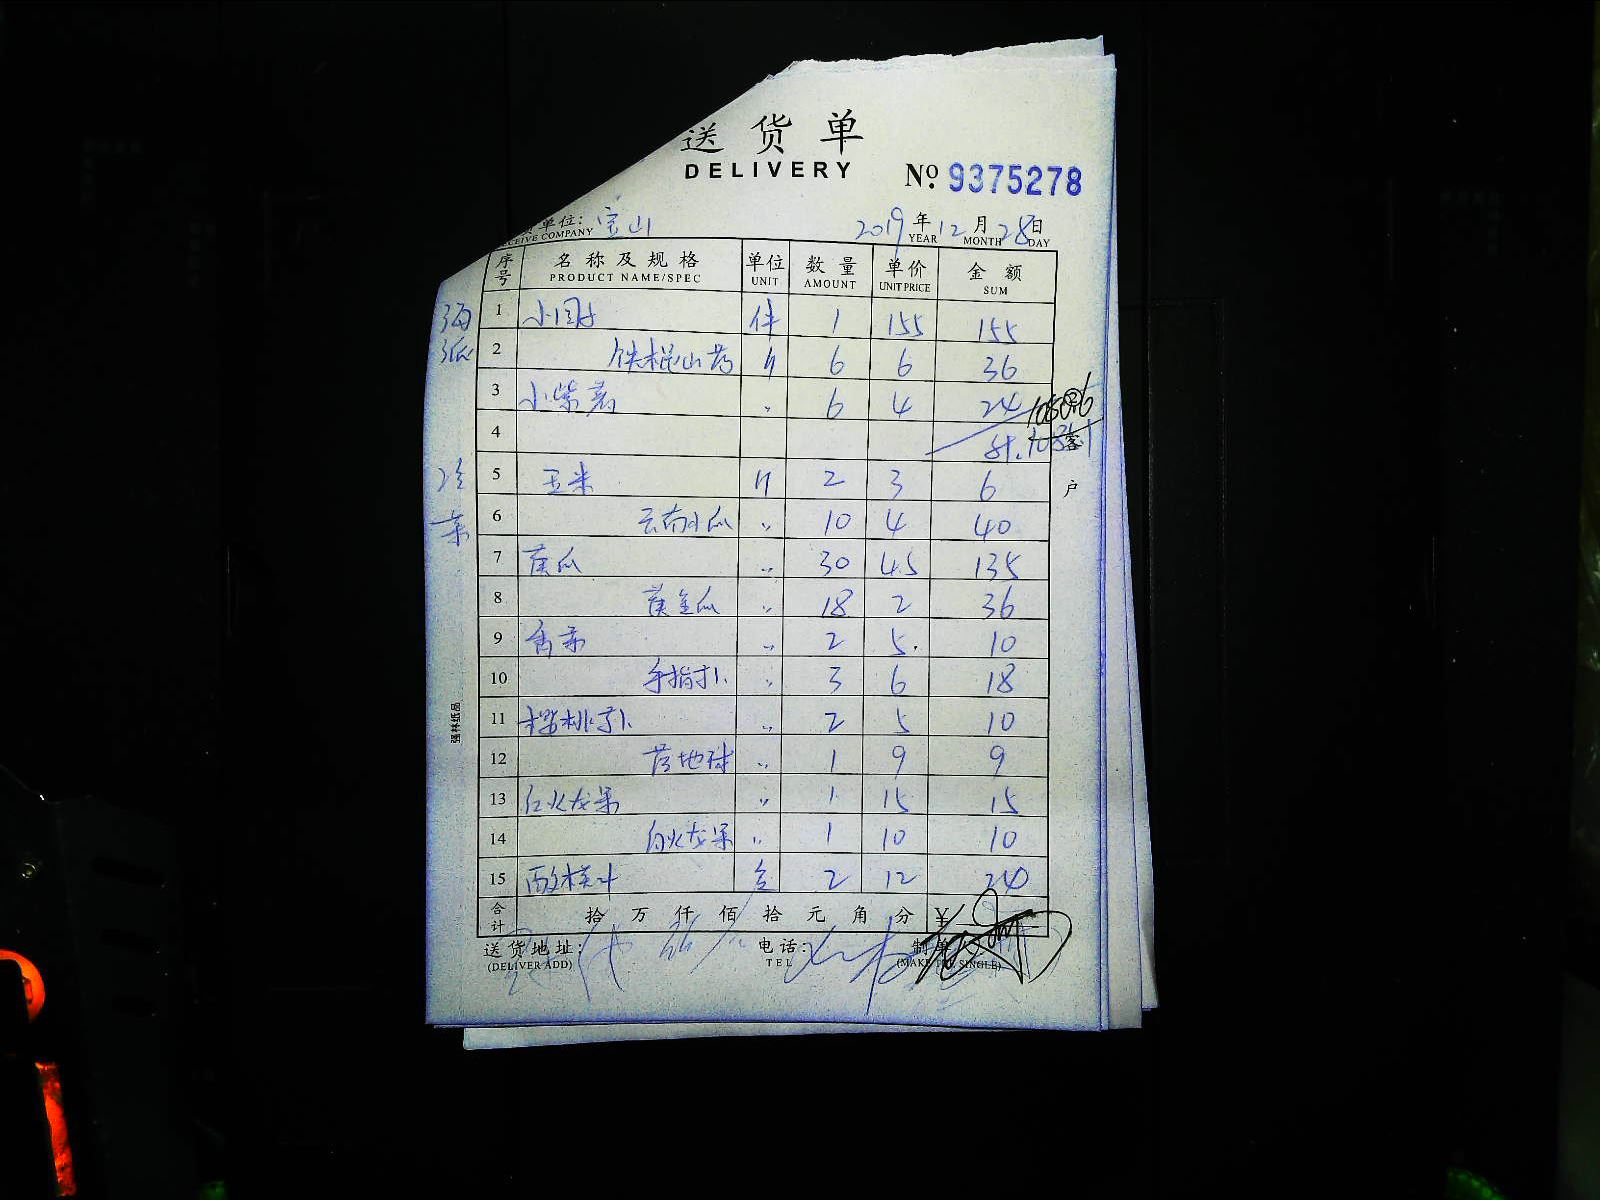 送货单
DELIVERY
No. 9375278
单位: 宝山
CEIVE COMPANY
2019年12月28日
YEAR MONTH DAY
序号 名称及规格 单位 数量 单价 金额
PRODUCT NAME/SPEC UNIT AMOUNT UNIT PRICE SUM
1 件 1 155 155
2 铁棍山药 〃 6 6 36
3 小紫薯 〃 6 4 24
4
5 玉米 〃 2 3 6
6 云南小瓜 〃 10 4 40
7 黄瓜 〃 30 4.5 135
8 黄金瓜 〃 18 2 36
9 香菜 〃 2 5 10
10 手指 〃 3 6 18
11 樱桃 〃 2 5 10
12 地球 〃 1 9 9
13 红火龙果 〃 1 15 15
14 白火龙果 〃 1 10 10
15 2 12 24
合计 拾 万 仟 佰 拾 元 角 分 ¥
送货地址: 电话: 制单
(DELIVER ADD) TEL (MAKE THE SINGLE)
客户
强林纸品